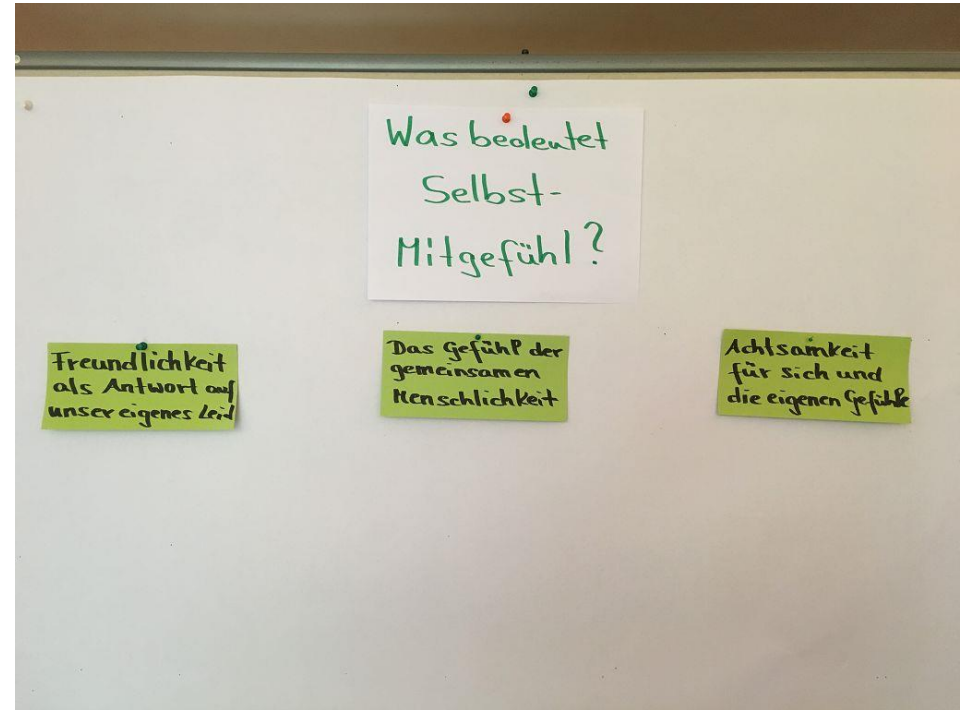 Was bedeutet
Selbst-
Mitgefühl?
Freundlichkeit
als Antwort auf
unser eigenes Leid
Das Gefühl der
gemeinsamen
Menschlichkeit
Achtsamkeit
für sich und
die eigenen Gefühle